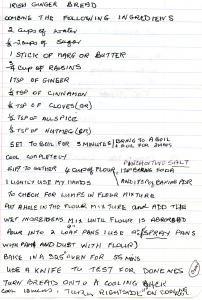 IRISH GINGER BREAD
COMBINE THE FOLLOWING INGREDIENTS
2 CUPS OF WATER
1½-2 CUPS OF SUGAR
1 STICK OF MARG OR BUTTER
¾ CUP OF RAISINS
1 TSP OF GINGER
½ TSP OF CINNAMON
½ TSP OF CLOVES (OR)
½ TSP OF ALLSPICE
½ TSP OF NUTMEG (OR)
SET TO BOIL FOR 3 MINUTES BRING TO A BOIL
& BOIL FOR 3 MINS
COOL COMPLETELY
PINCH OF SALT
SIFT TOGETHER 4 CUPS OF FLOUR, 1 TSP BAKING SODA
I USUALLY USE MY HANDS AND 1 TSP BAKING PDR
TO CHECK FOR LUMPS IN FLOUR MIXTURE
PUT A HOLE IN THE FLOUR MIXTURE AND ADD THE
WET INGREDIENTS MIX UNTIL FLOUR IS ABSORBED
POUR INTO 2 LOAF PANS (USE SPRAY PANS
WITH PAM AND DUST WITH FLOUR)
BAKE IN 325° OVEN FOR 55 MINS
USE A KNIFE TO TEST FOR DONENESS
TURN BREADS ONTO A COOLING RACK
TURN RIGHTSIDE ON